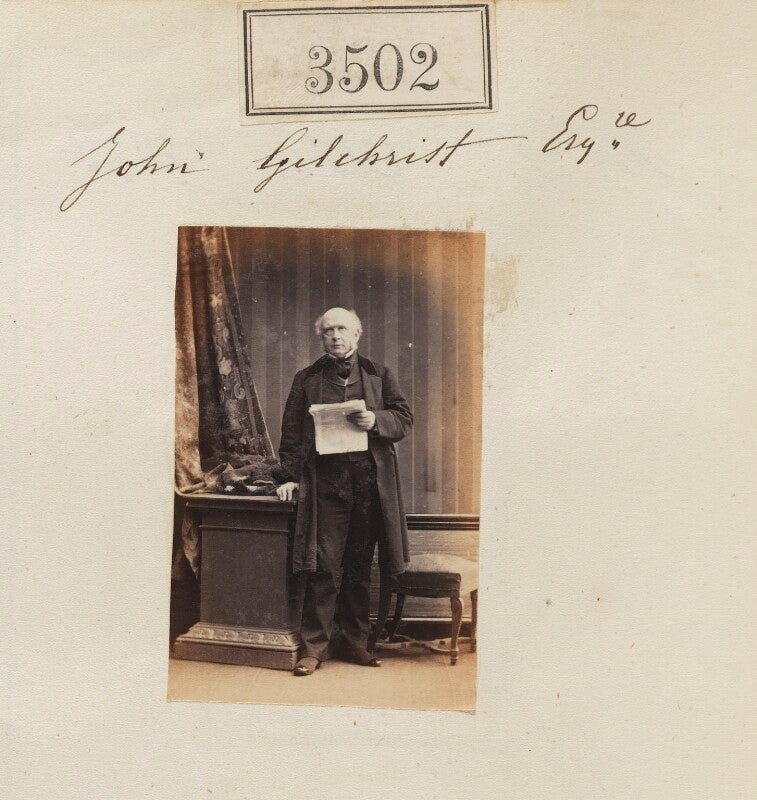 3502
John Gilchrist Esqre